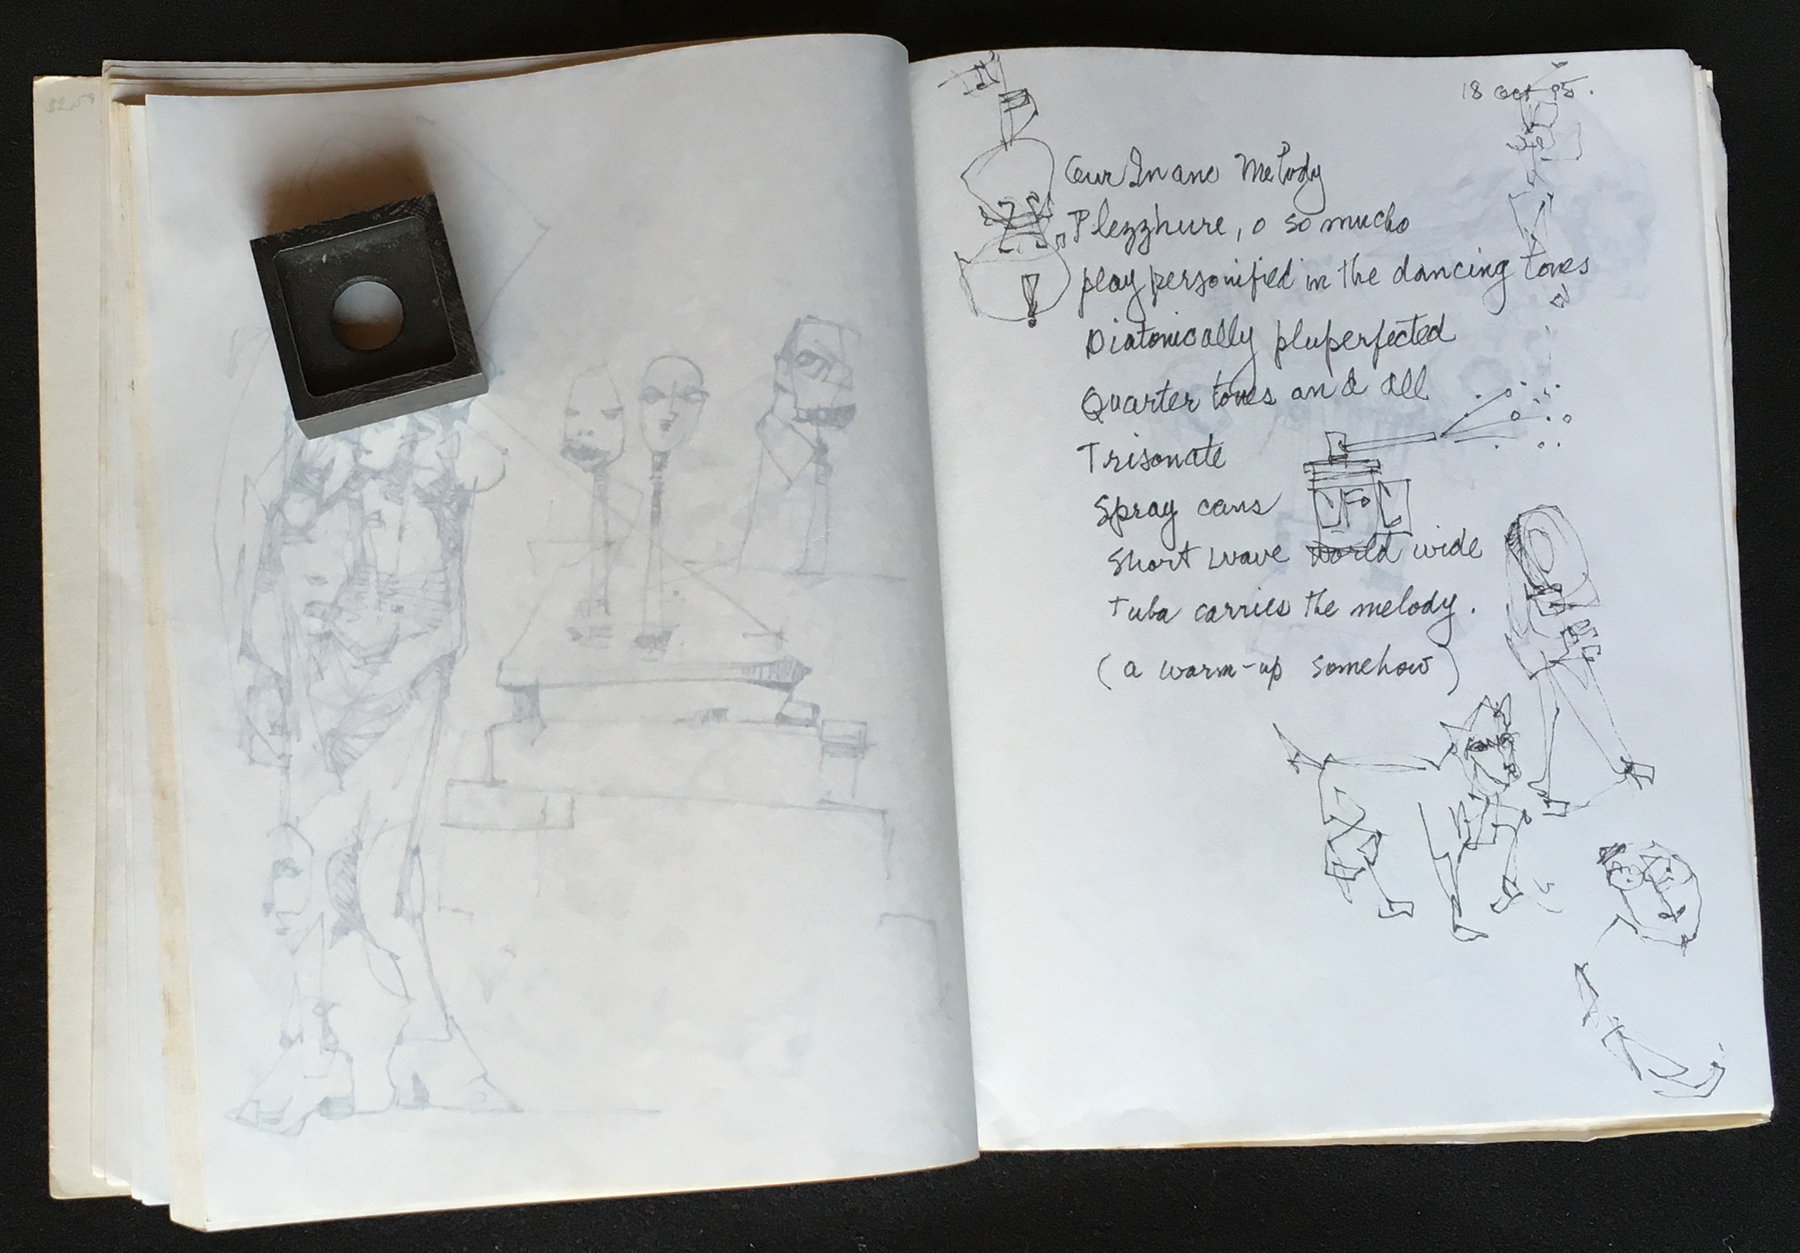 18 Oct 95.
Our Inane Melody
Plezzhure, o so mucho
play personified in the dancing tones
Diatonically pluperfected
Quarter tones and all
Trisonate
Spray cans
Short wave world wide
tuba carries the melody.
(a warm-up somehow)